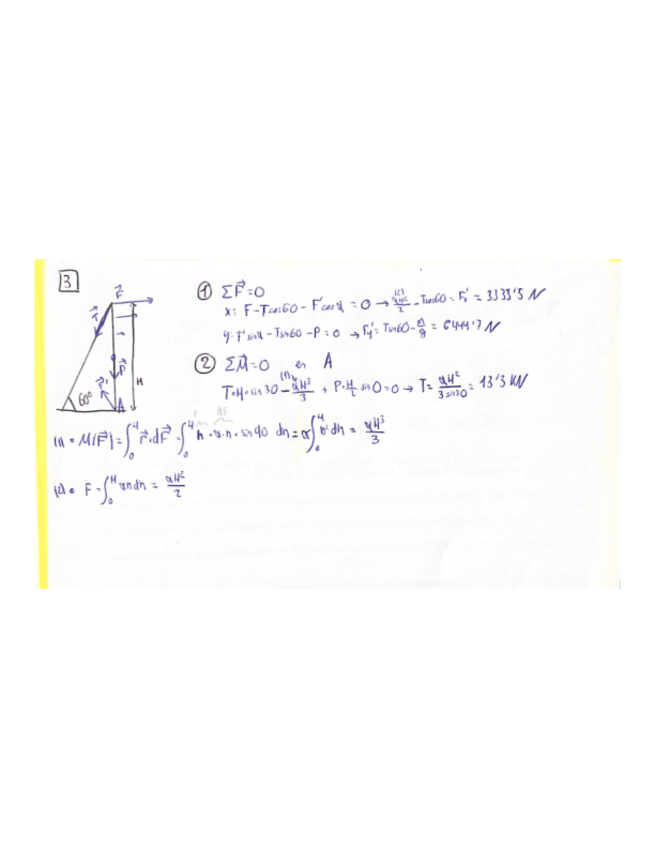 3
① ΣF⃗=0
x: F-Tcos60-F'cosα = 0 → αH²/2 - Tcos60 = Fx' = 3333'5 N
y: F'sinα-Tsin60-P=0 → Fy'= Tsin60- = 6444'7 N
② ΣM⃗=0 en A
T·H·sin30 - αH³/3 + P·H/2 sin0=0 → T= αH²/3sin30 = 13'3 kN
F⃗
T⃗
P⃗
H
F⃗'
60º
A
r dF
(1) • M(F⃗)=∫₀ᴴ r⃗·dF⃗ = ∫₀ᴴ h·α·h·sin90 dh = α∫₀ᴴ h²dh = αH³/3
(2) • F=∫₀ᴴ αhdh = αH²/2